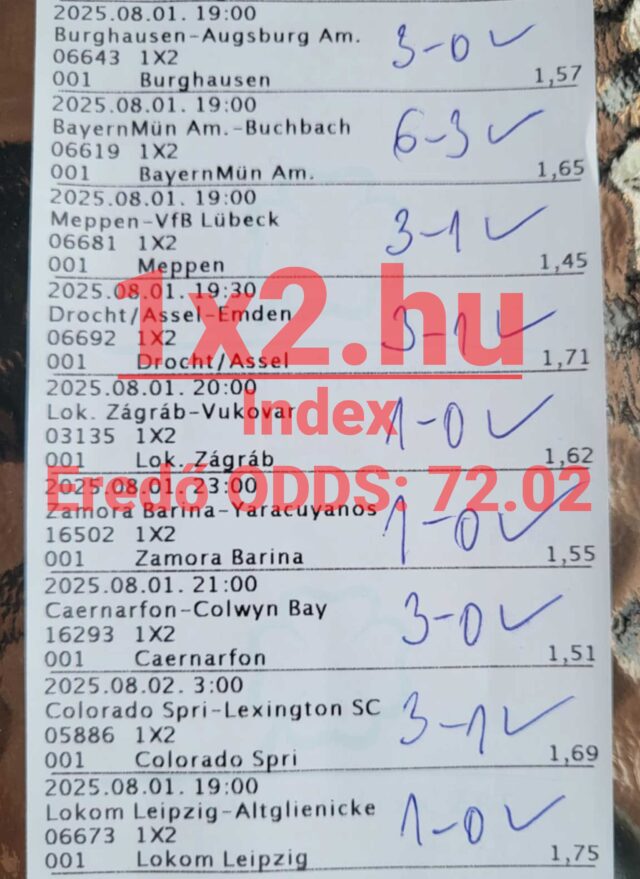 2025.08.01. 19:00
Burghausen-Augsburg Am.
06643 1X2
3-0 ✓
001 Burghausen 1,57
2025.08.01. 19:00
BayernMün Am.-Buchbach
06619 1X2
6-3 ✓
001 BayernMün Am. 1,65
2025.08.01. 19:00
Meppen-VfB Lübeck
06681 1X2
3-1 ✓
001 Meppen 1,45
2025.08.01. 19:30
Drocht/Assel-Emden
06692 1X2
3-1 ✓
001 Drocht/Assel 1,71
1x2.hu
2025.08.01. 20:00
Lok. Zágráb-Vukovar
03135 1X2
1-0 ✓
001 Lok. Zágráb 1,62
Index
Eredő ODDS: 72.02
2025.08.01. 23:00
Zamora Barina-Yaracuyanos
16502 1X2
1-0 ✓
001 Zamora Barina 1,55
2025.08.01. 21:00
Caernarfon-Colwyn Bay
16293 1X2
3-0 ✓
001 Caernarfon 1,51
2025.08.02. 3:00
Colorado Spri-Lexington SC
05886 1X2
3-1 ✓
001 Colorado Spri 1,69
2025.08.01. 19:00
Lokom Leipzig-Altglienicke
06673 1X2
1-0 ✓
001 Lokom Leipzig 1,75